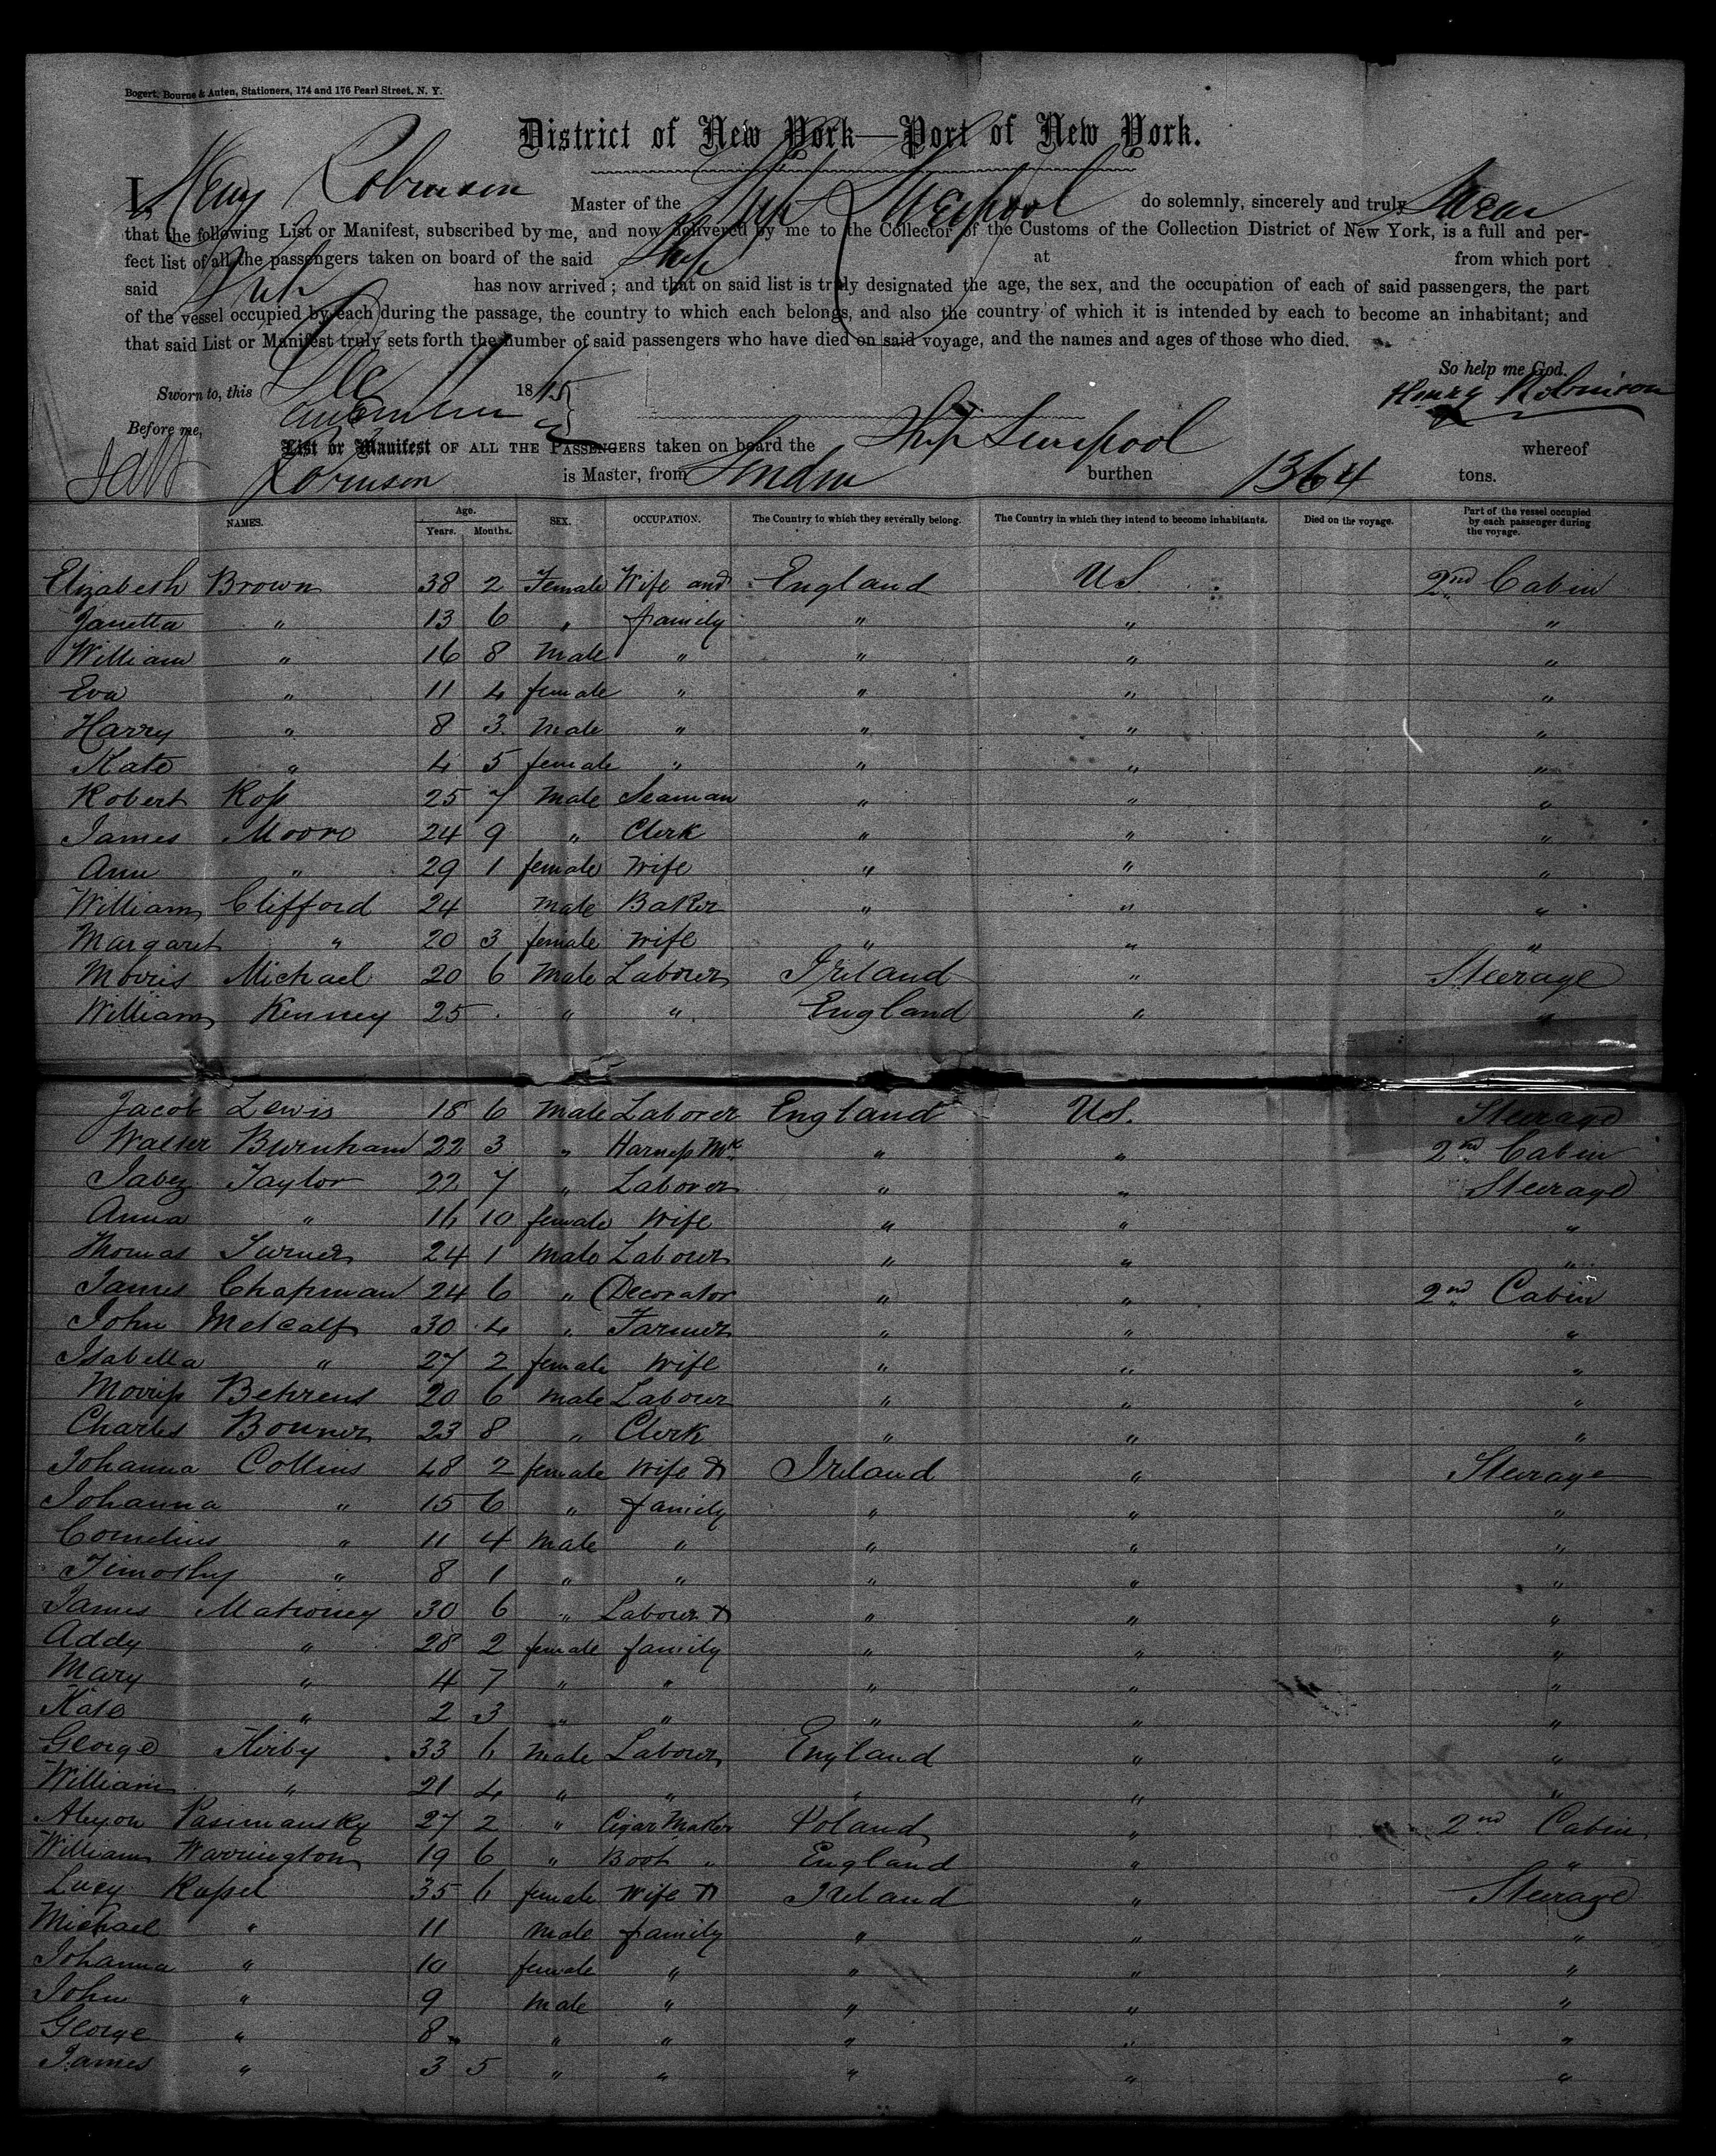 Bogert, Bourne & Auten, Stationers, 174 and 176 Pearl Street, N. Y.
District of New York—Port of New York.
I, Henry Robinson Master of the Ship Liverpool do solemnly, sincerely and truly Swear
that the following List or Manifest, subscribed by me, and now delivered by me to the Collector of the Customs of the Collection District of New York, is a full and per-
fect list of all the passengers taken on board of the said Ship at from which port
said Ship has now arrived; and that on said list is truly designated the age, the sex, and the occupation of each of said passengers, the part
of the vessel occupied by each during the passage, the country to which each belongs, and also the country of which it is intended by each to become an inhabitant; and
that said List or Manifest truly sets forth the number of said passengers who have died on said voyage, and the names and ages of those who died.
So help me God.
Sworn to, this 18
Henry Robinson
Before me,
List or Manifest OF ALL THE PASSENGERS taken on board the Ship Liverpool whereof
Robinson is Master, from London burthen 1364 tons.
NAMES. Age. Years. Months. SEX. OCCUPATION. The Country to which they severally belong. The Country in which they intend to become inhabitants. Died on the voyage. Part of the vessel occupied by each passenger during the voyage.
Elizabeth Brown 38 2 Female Wife and England US. 2nd Cabin
Janetta " 13 6 " family " " "
William " 16 8 Male " " " "
Eva " 11 4 female " " " "
Harry " 8 3 Male " " " "
Kate " 4 5 female " " " "
Robert Ross 25 7 Male Seaman " " "
James Moore 24 9 " Clerk " " "
Ann " 29 1 female Wife " " "
William Clifford 24 Male Baker " " "
Margaret " 20 3 female Wife " " "
Morris Michael 20 6 Male Labourer Ireland " Steerage
William Kenney 25 " " England " "
Jacob Lewis 18 6 Male Laborer England US. Steerage
Walter Burnham 22 3 " Harness Mkr " " 2nd Cabin
Jabez Taylor 22 7 " Laborer " " Steerage
Anna " 16 10 female Wife " " "
Thomas Turner 24 1 Male Labourer " " "
James Chapman 24 6 " Decorator " " 2nd Cabin
John Metcalf 30 4 " Farmer " " "
Isabella " 27 2 female Wife " " "
Morriss Behrens 20 6 Male Labourer " " "
Charles Bonner 23 8 " Clerk " " "
Johanna Collins 48 2 female Wife & Ireland " Steerage
Johanna " 15 6 " family " " "
Cornelius " 11 4 Male " " " "
Timothy " 8 1 " " " " "
James Mahoney 30 6 " Labourer & " " "
Addy " 28 2 female family " " "
Mary " 4 7 " " " " "
Kate " 2 3 " " " " "
George Kirby 33 6 Male Labourer England " "
William " 21 4 " " " " "
Pasimansky 27 2 " Cigar Maker Poland " 2nd Cabin
William Warrington 19 6 " Boot " England " "
Lucy Russel 35 6 female Wife & Ireland " Steerage
Michael " 11 Male family " " "
Johanna " 10 female " " " "
John " 9 Male " " " "
George " 8 " " " " "
James " 3 5 " " " " "